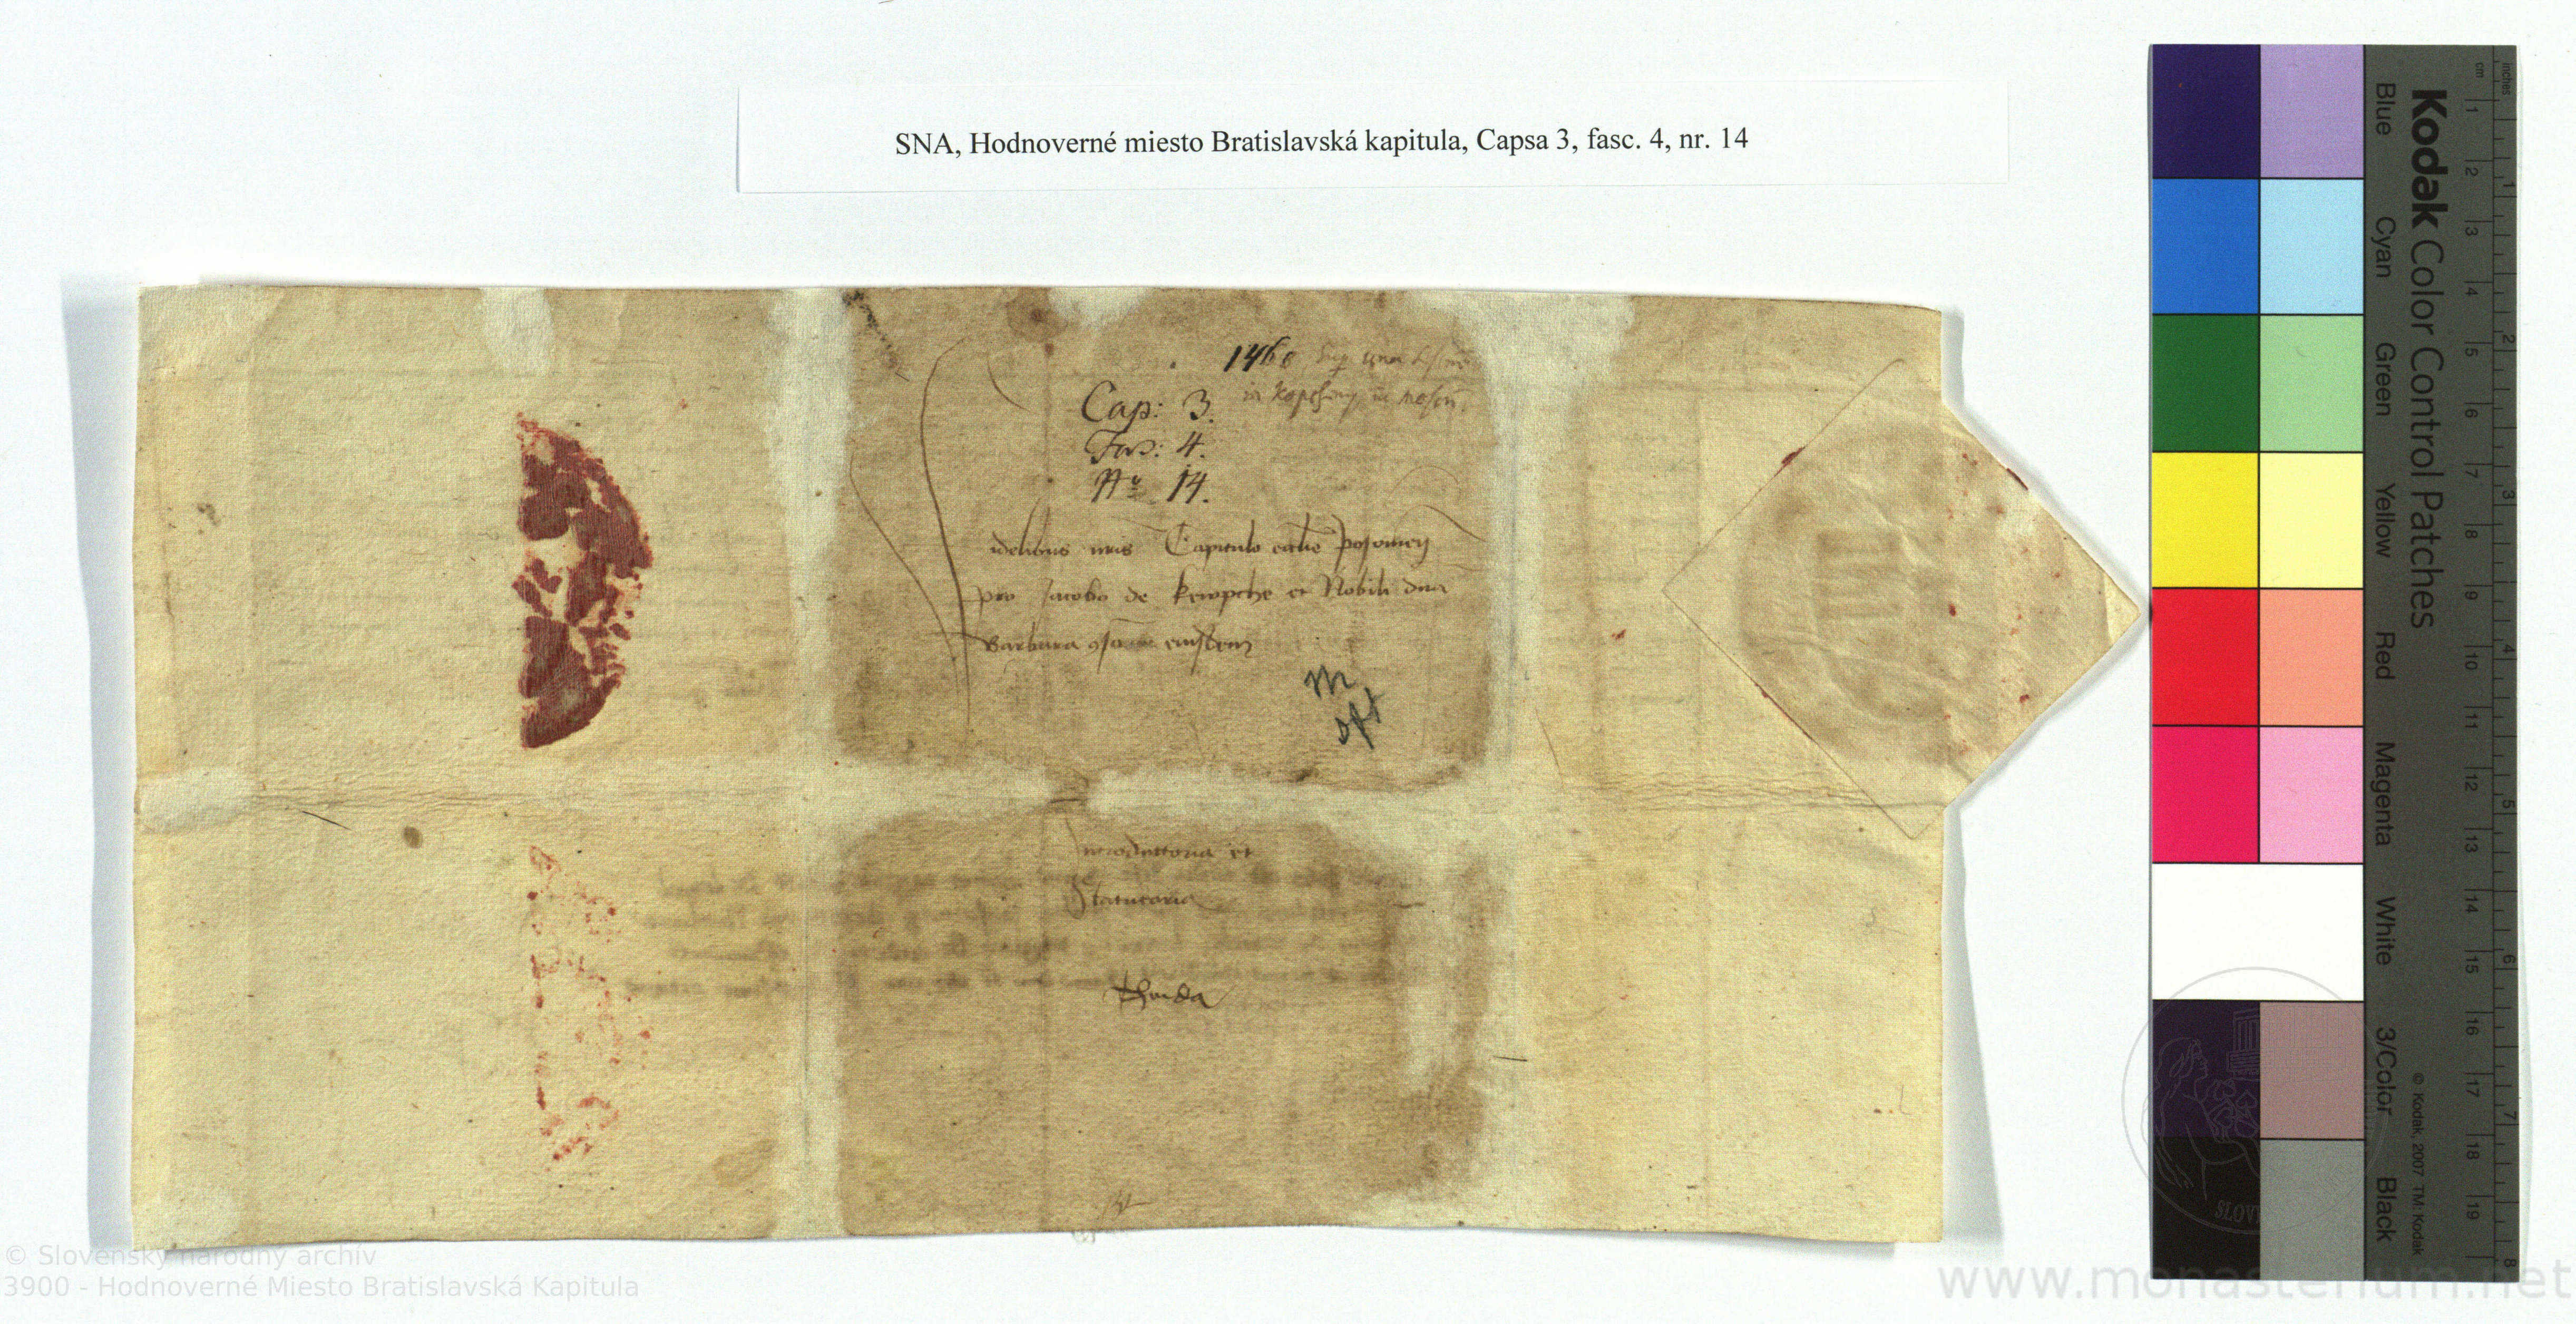 SNA, Hodnoverné miesto Bratislavská kapitula, Capsa 3, fasc. 4, nr. 14
1460
in kopcheny in moson.
Cap: 3.
Fas: 4.
No 14.
idelibus nris Capitulo ecclie Posonien
pro Jacobo de kewpche et Nobili dna
Barbara eiusdem
Introductoria et
Statutoria
M
Kodak Color Control Patches
Blue Cyan Green Yellow Red Magenta White 3/Color Black
© Kodak, 2007 TM: Kodak
cm 1 2 3 4 5 6 7 8 9 10 11 12 13 14 15 16 17 18 19
inches 1 2 3 4 5 6 7 8
© Slovenský národný archív
3900 - Hodnoverné Miesto Bratislavská Kapitula
www.monasterium.net